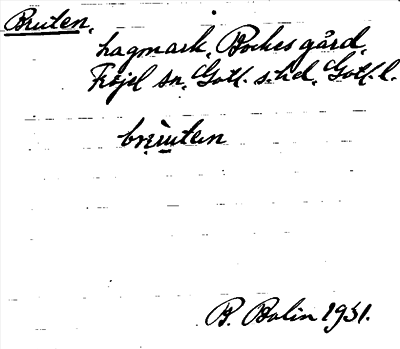 Bruten,
hagmark, Bockes gård,
Fröjel sn, Gotl. s. hd, Gotl. l.
brùtən
B. Bolin 1931.